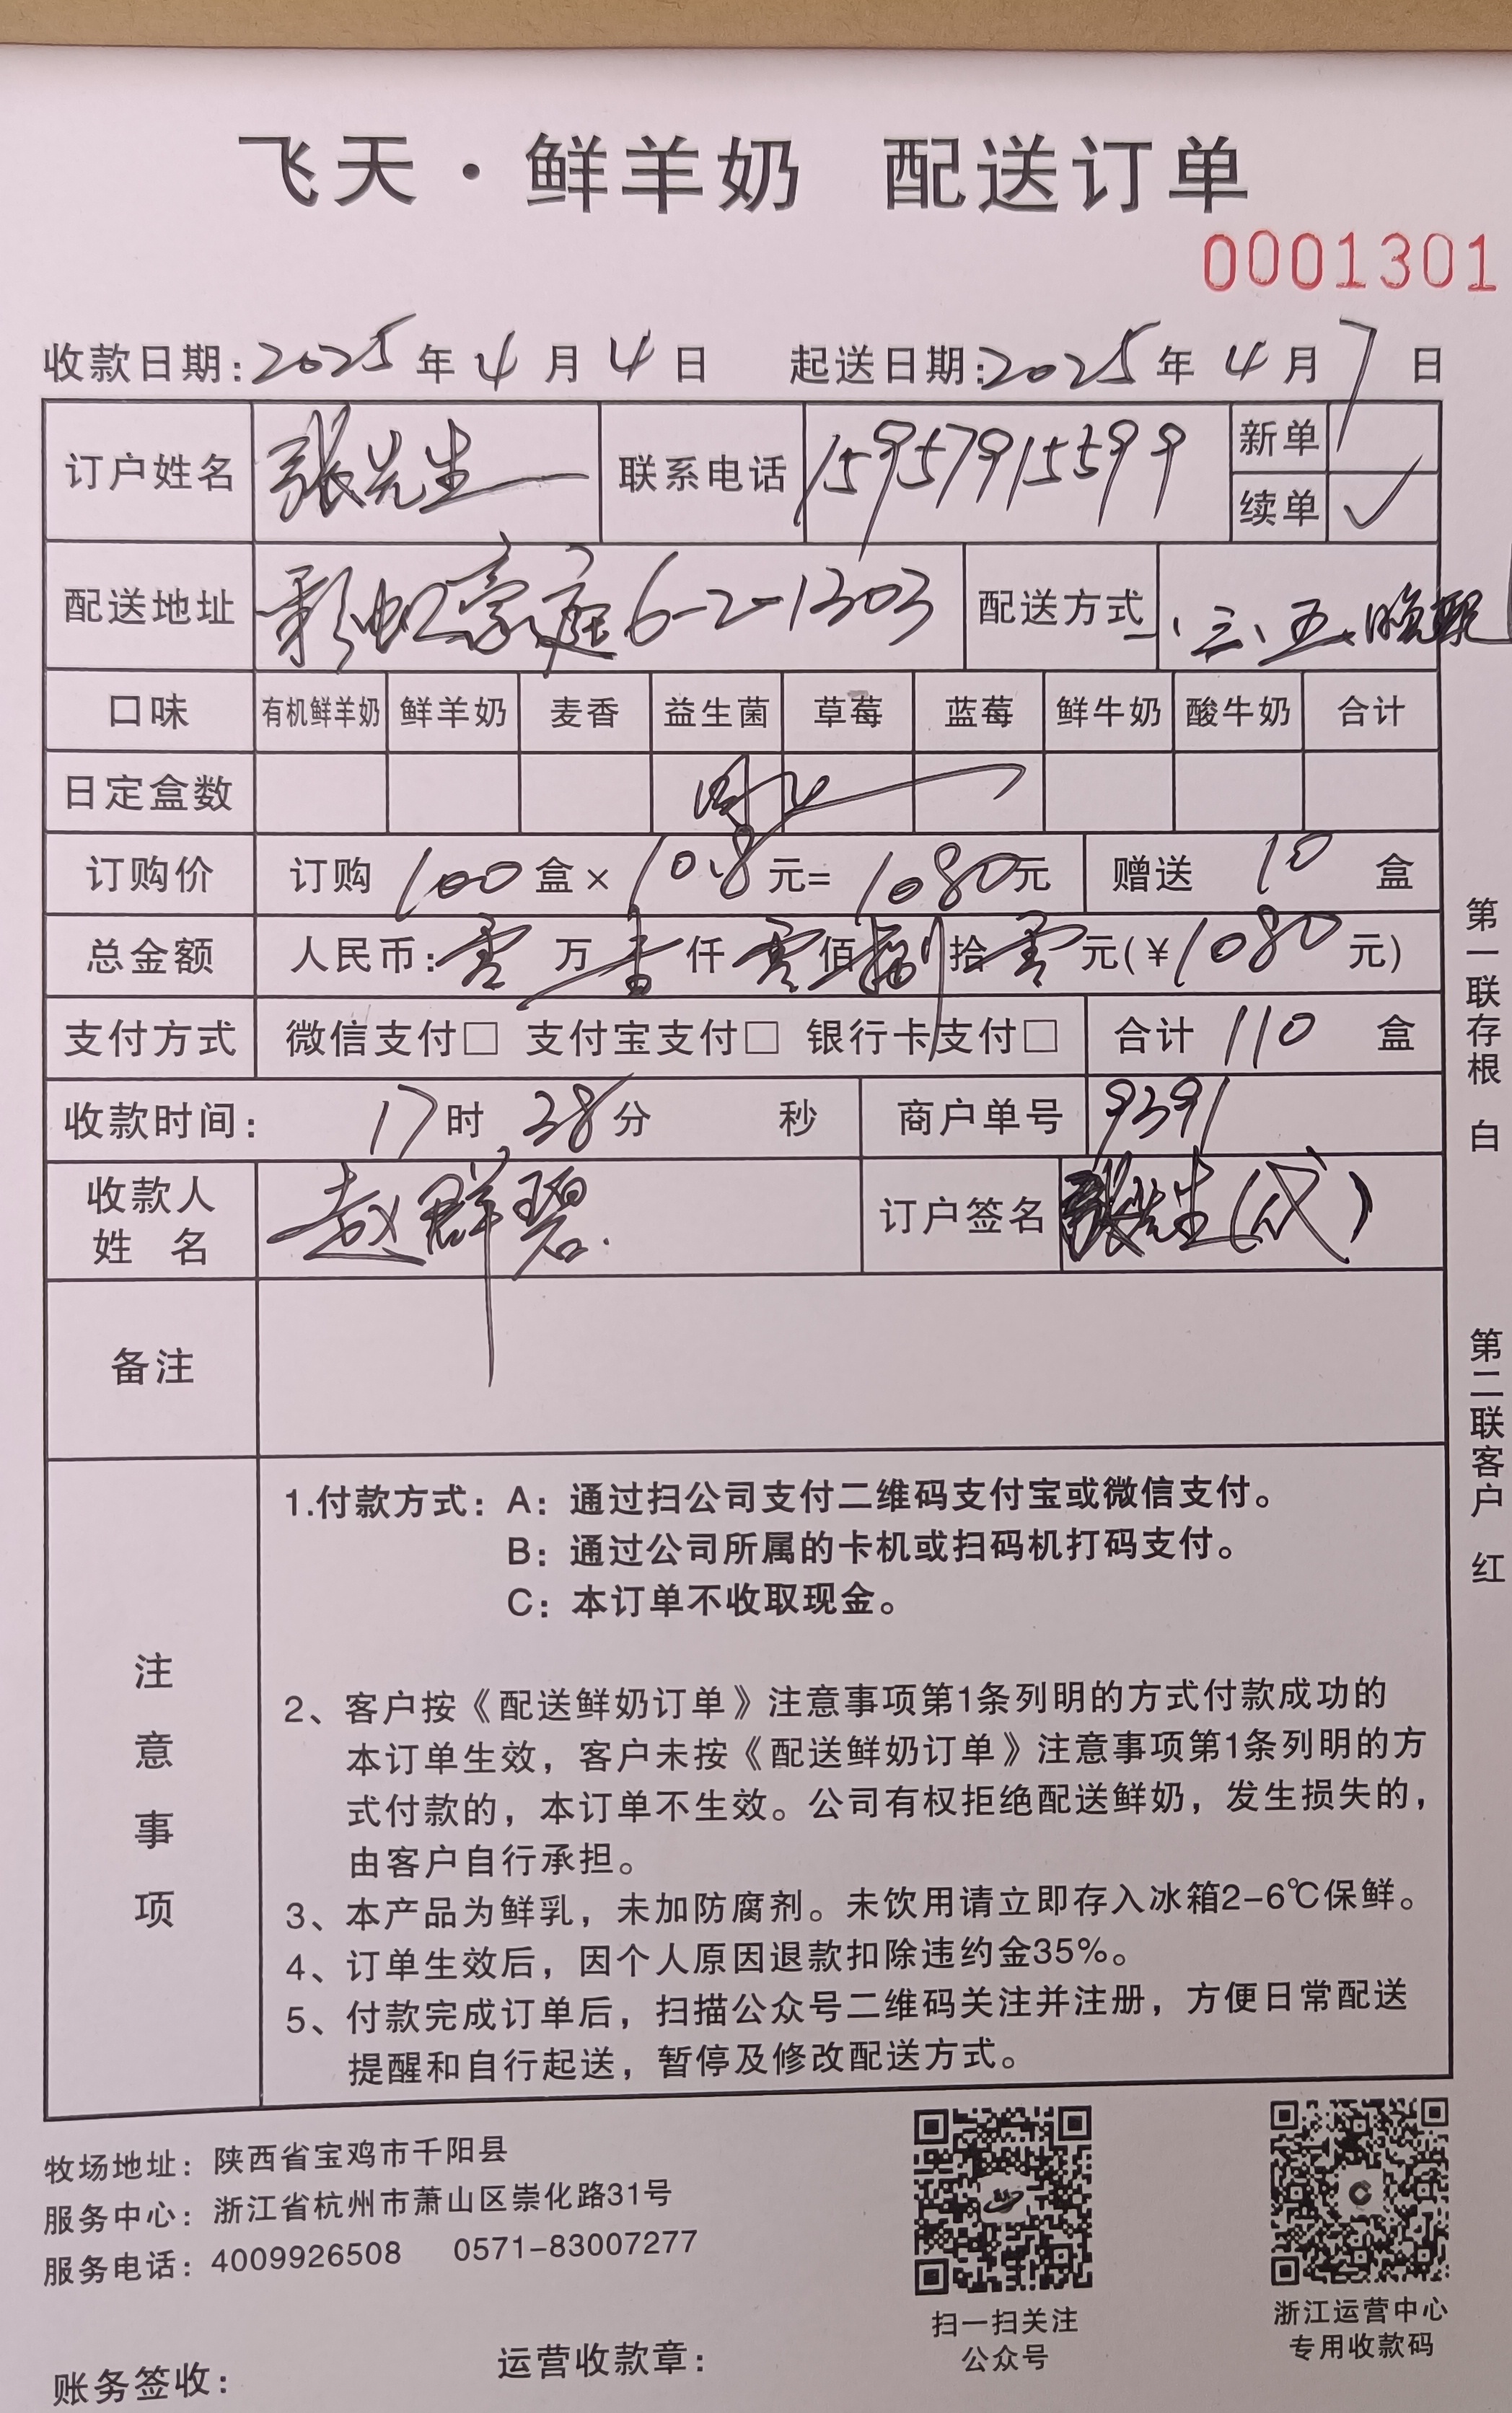 飞天·鲜羊奶 配送订单
0001301
收款日期:2025年4月4日 起送日期:2025年4月7日
订户姓名 張先生 联系电话 15957915599 新单
续单 ✓
配送地址 彩虹豪庭6-2-1303 配送方式 一、三、五、晚配
口味 有机鲜羊奶 鲜羊奶 麦香 益生菌 草莓 蓝莓 鲜牛奶 酸牛奶 合计
日定盒数
订购价 订购 100 盒× 10.8 元= 1080元 赠送 10 盒
总金额 人民币:零万壹仟零佰捌拾零元(¥1080元)
支付方式 微信支付□ 支付宝支付□ 银行卡支付□ 合计 110 盒
收款时间: 17时 38分 秒 商户单号 9391
收款人姓名 赵群碧 订户签名 張先生(代)
备注
注意事项
1.付款方式:A:通过扫公司支付二维码支付宝或微信支付。
B:通过公司所属的卡机或扫码机打码支付。
C:本订单不收取现金。
2、客户按《配送鲜奶订单》注意事项第1条列明的方式付款成功的
本订单生效,客户未按《配送鲜奶订单》注意事项第1条列明的方
式付款的,本订单不生效。公司有权拒绝配送鲜奶,发生损失的,
由客户自行承担。
3、本产品为鲜乳,未加防腐剂。未饮用请立即存入冰箱2-6℃保鲜。
4、订单生效后,因个人原因退款扣除违约金35%。
5、付款完成订单后,扫描公众号二维码关注并注册,方便日常配送
提醒和自行起送,暂停及修改配送方式。
第一联存根 白
第二联客户 红
牧场地址:陕西省宝鸡市千阳县
服务中心:浙江省杭州市萧山区崇化路31号
服务电话:4009926508 0571-83007277
扫一扫关注
公众号
浙江运营中心
专用收款码
账务签收: 运营收款章: